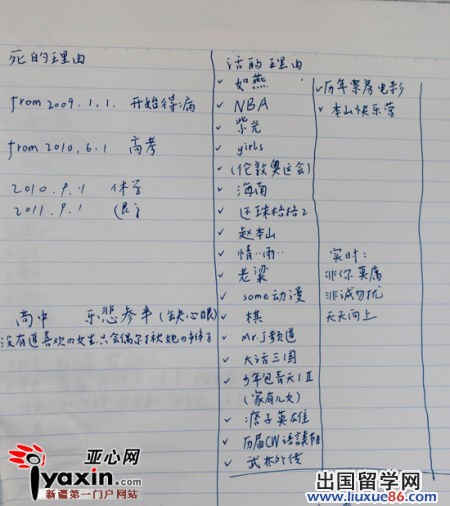 死的理由
from 2009.1.1. 开始得病
from 2010.6.1 高考
2010.9.1 休学
2011.9.1
高中 乐悲参半(缺心眼)
没有追喜欢的女生只会偶尔
活的理由
✓ 如燕
✓ NBA
✓ 紫光
✓ girls
✓ (伦敦奥运会)
✓ 海南
✓ 还珠格格2
✓ 赵本山
✓ 情··雨··
✓ 老梁
✓ some动漫
✓ 棋
✓ Mr.J频道
✓ 大话三国
✓ 少年包青天 I II
(家有儿女)
✓ 痞子英雄
✓ 历届CW语谈节目
✓ 武林外传
✓ 历年票房电影
✓ 本山快乐营
实时:
非你莫属
非诚勿扰
天天向上
亚心网
iyaxin.com
新疆第一门户网站
出国留学网
www.liuxue86.com